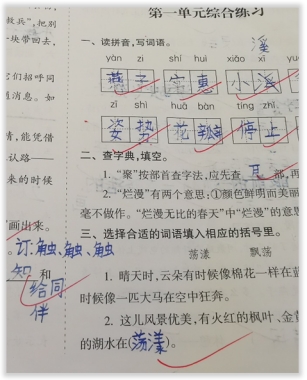 第一单元综合练习
一、读拼音,写词语。
溪
yàn zi shí huì xiǎo xī
燕子 实惠 小溪
zī shì huā bàn tíng zhǐ
姿势 花瓣 停止
二、查字典,填空。
1. “聚”按部首查字法,应先查 耳 部,再
2. “烂漫”有两个意思:①颜色鲜明而美丽
毫不做作。“烂漫无比的春天”中“烂漫”的意思
三、选择合适的词语填入相应的括号里。
荡漾 飘荡
1. 晴天时,云朵有时候像棉花一样在蓝
时候像一匹大马在空中狂奔。
2. 这儿风景优美,有火红的枫叶、金黄
的湖水在(荡漾)。
救兵”,把别
块带回去,
它们招呼同
通消息。如
情,能凭借
认路——
来的时候
”画出来。
订:触、触、触
知 和
给同
伴